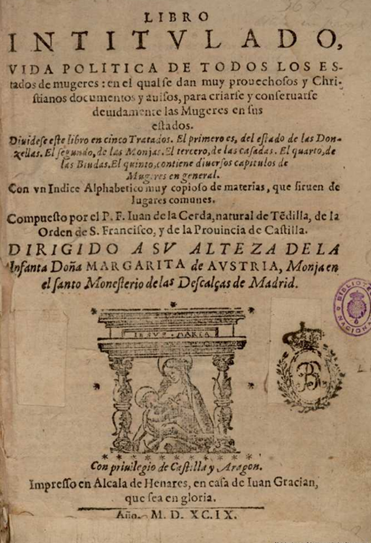 LIBRO
INTITVLADO,
VIDA POLITICA DE TODOS LOS ES-
tados de mugeres: en el qual se dan muy prouechosos y Chri-
stianos documentos y auisos, para criarse y conseruarse
deuidamente las Mugeres en sus
estados.
Diuidese este libro en cinco Tratados. El primero es, del estado de las Don-
zellas. El segundo, de las Monjas. El tercero, de las casadas. El quarto, de
las Biudas. El quinto, contiene diuersos capitulos de
Mugeres en general.
Con vn Indice Alphabetico muy copioso de materias, que siruen de
lugares comunes.
Compuesto por el P. F. Iuan de la Cerda, natural de Tẽdilla, de la
Orden de S. Francisco, y de la Prouincia de Castilla.
DIRIGIDO A SV ALTEZA DE LA
Infanta Doña MARGARITA de AVSTRIA, Monja en
el santo Monesterio de las Descalças de Madrid.
IESVS MARIA
B
Con priuilegio de Castilla y Aragon.
Impresso en Alcala de Henares, en casa de Iuan Gracian,
que sea en gloria.
Año. M. D. XC. IX.